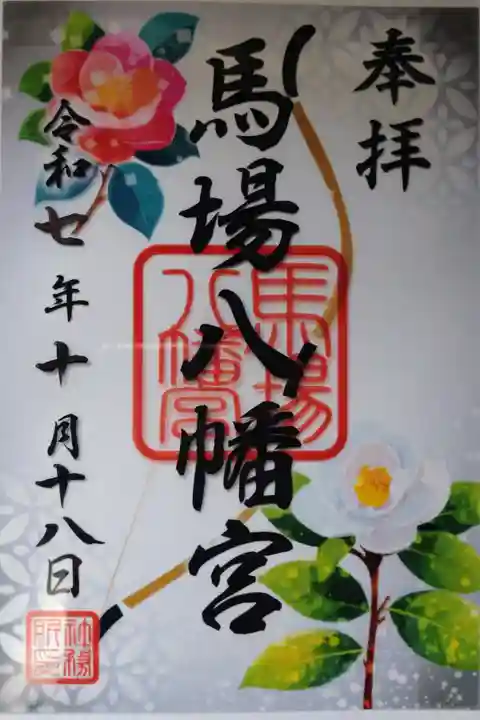 奉拝
馬場八幡宮
馬場
八幡宮
令和七年十月十八日
社務
所印